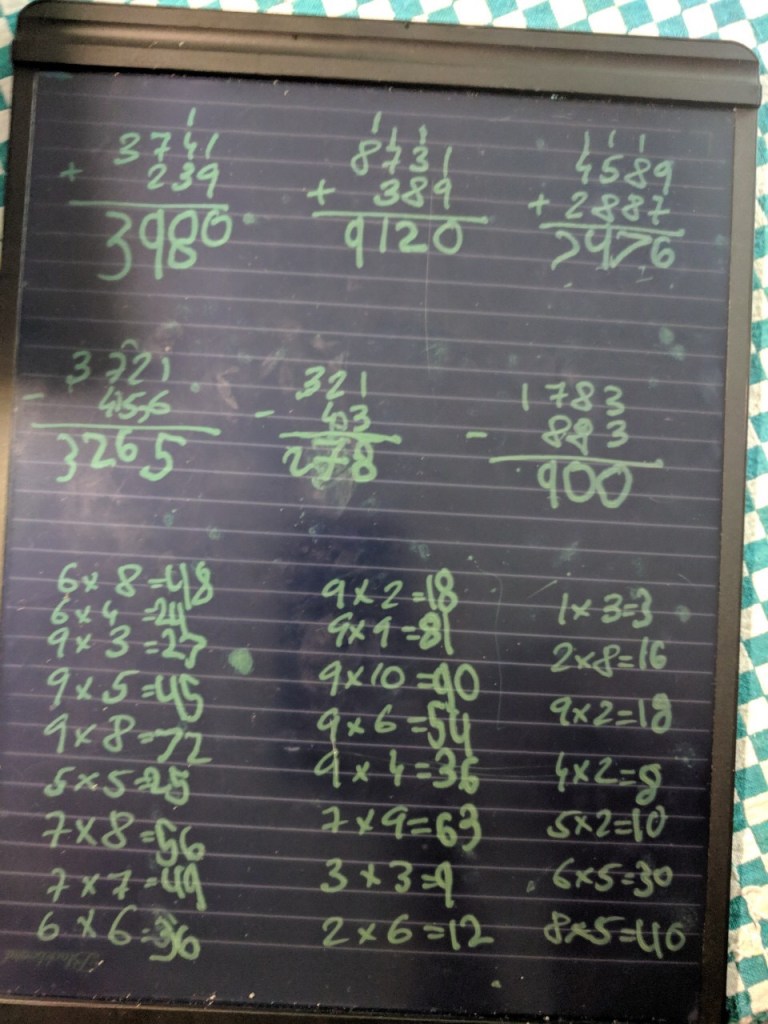 1 1 1 1 1 1 1
3741 8731 4589
+ 239 + 389 + 2887
3980 9120 7476
3721 321 1783
- 456 - 43 - 883
3265 278 900
6 x 8 = 48
6 x 4 = 24
9 x 3 = 27
9 x 5 = 45
9 x 8 = 72
5 x 5 = 25
7 x 8 = 56
7 x 7 = 49
6 x 6 = 36
9 x 2 = 18
9 x 9 = 81
9 x 10 = 90
9 x 6 = 54
9 x 4 = 36
7 x 9 = 63
3 x 3 = 9
2 x 6 = 12
1 x 3 = 3
2 x 8 = 16
9 x 2 = 18
4 x 2 = 8
5 x 2 = 10
6 x 5 = 30
8 x 5 = 40